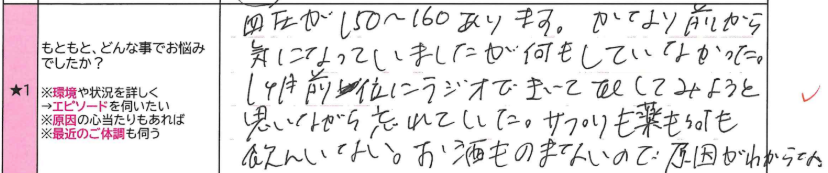 もともと、どんな事でお悩み
でしたか？
★1
※環境や状況を詳しく
→エピソードを伺いたい
※原因の心当たりもあれば
※最近のご体調も伺う
血圧が150〜160あります。かなり前から
気になっていましたが何もしていなかった。
1ヶ月前位にラジオできいてTELしてみようと
思いながら忘れていた。サプリも薬も何も
飲んでいない。お酒ものまないので原因がわからない